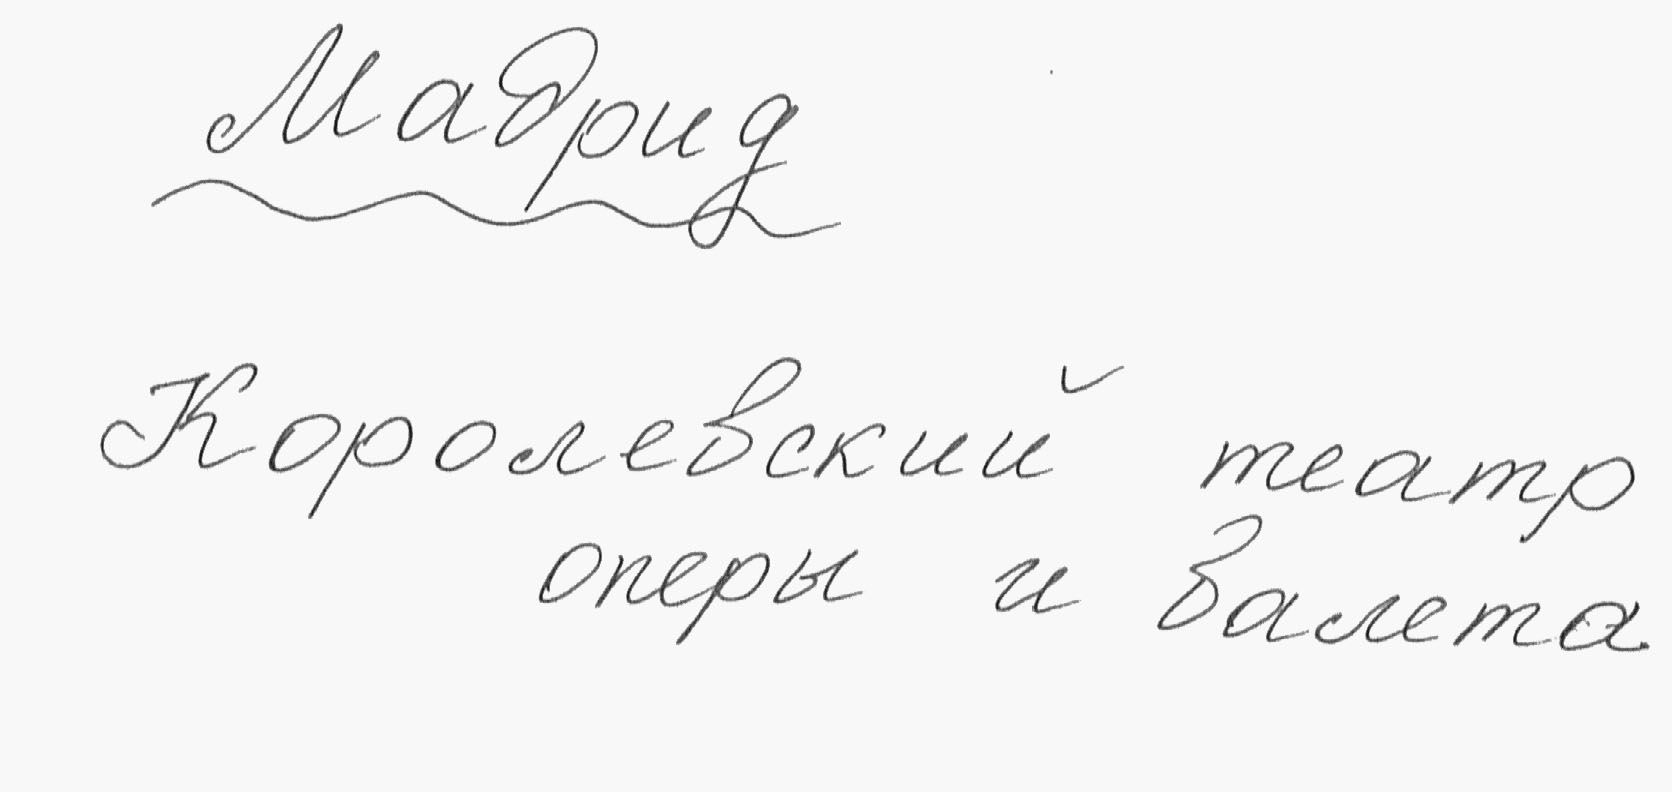 Мадрид
Королевский театр
оперы и балета.